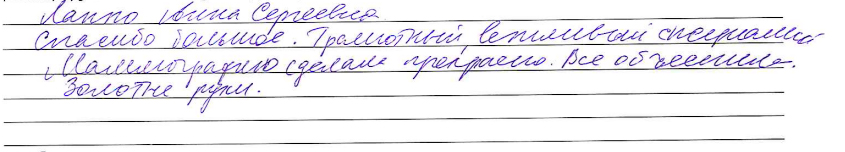 Лаппо Анна Сергеевна
Спасибо большое. Грамотный, вежливый специалист
Маммографию сделали прекрасно. Все объяснила.
Золотые руки.